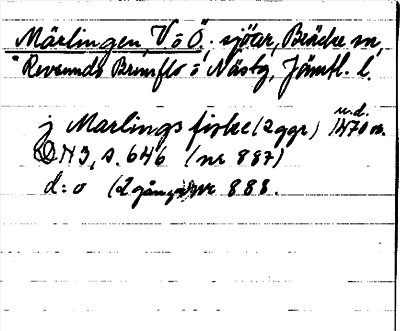 Märlingen, V o Ö, sjöar, Bräcke sn,
Revsunds Brunflo o Näs tg, Jämtl. l.
j Marlings fiske (2 ggr) 1470 u.d.
N 3, s. 646 (nr 887)
d:o (2 gånger) nr 888.